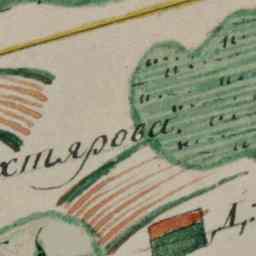 хтярова
Д.